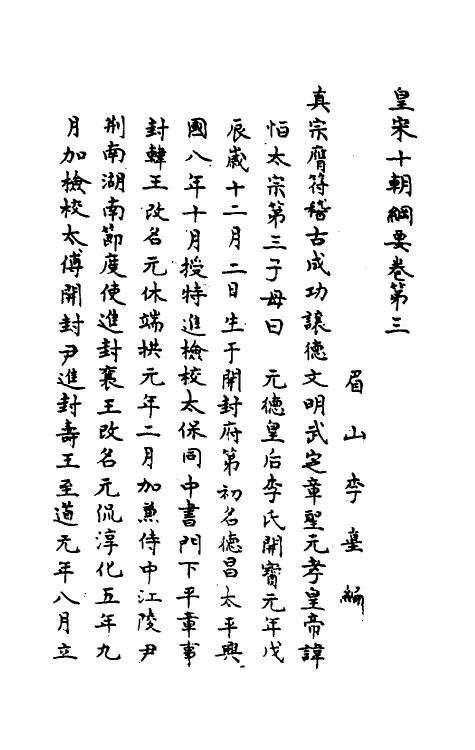 皇宋十朝綱要卷第三
眉山李𡌴編
真宗膺符稽古成功讓德文明武定章聖元孝皇帝諱
恒太宗第三子母曰　元德皇后李氏開寶元年戊
辰歲十二月二日生于開封府第初名德昌太平興
國八年十月授特進檢校太保同中書門下平章事
封韓王改名元休端拱元年二月加兼侍中江陵尹
荆南湖南節度使進封襄王改名元侃淳化五年九
月加檢校太傅開封尹進封壽王至道元年八月立